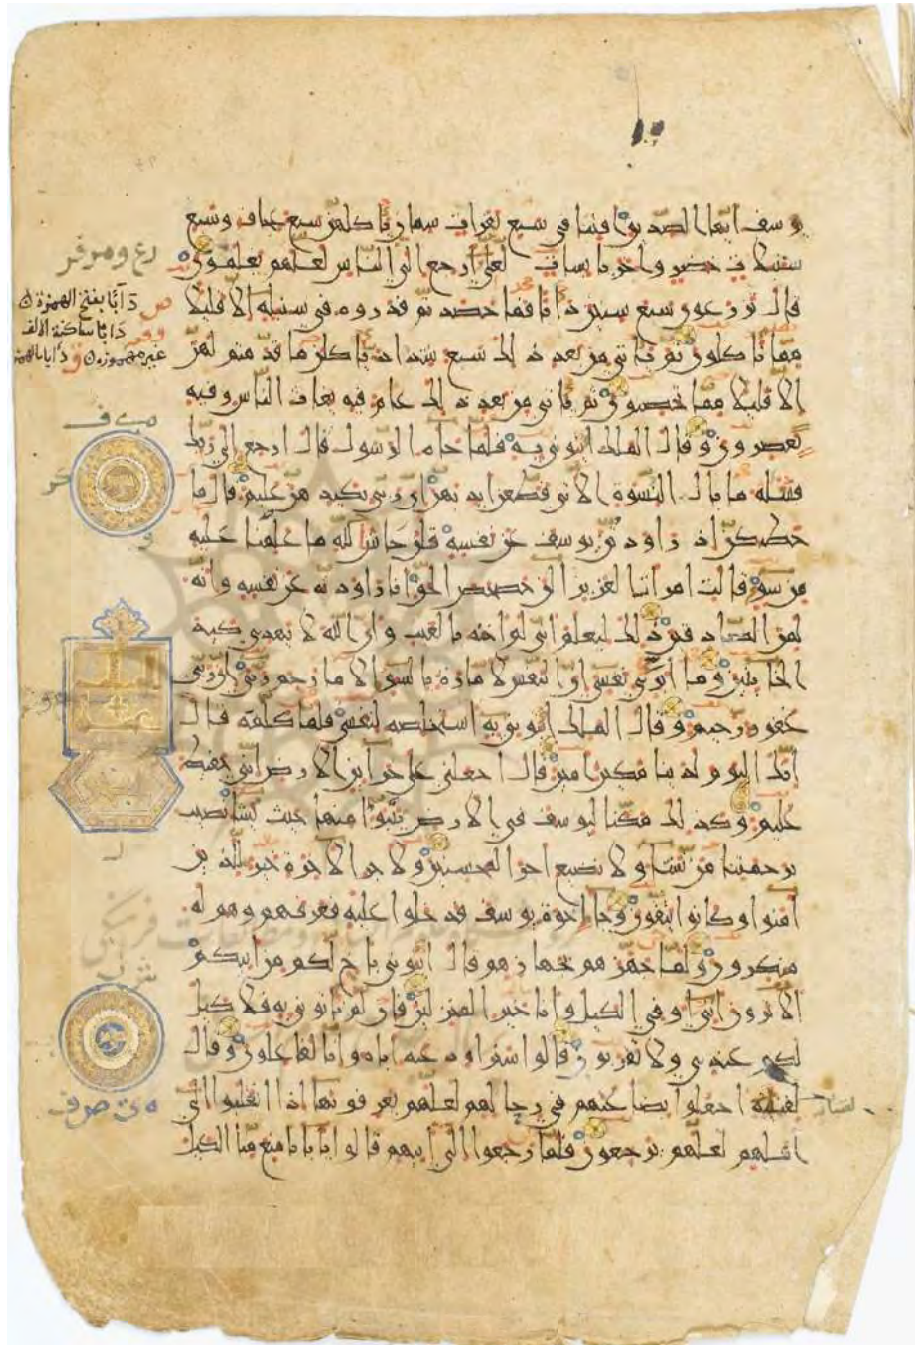 يوسف ايها الصديق افتنا في سبع بقرات سمان ياكلهن سبع عجاف وسبع
سنبلات خضر واخر يابسات لعلي ارجع الي الناس لعلهم يعلمون
قال تزرعون سبع سنين دابا فما حصدتم فذروه في سنبله الا قليلا
مما تاكلون ثم ياتي من بعد ذلك سبع شداد ياكلن ما قدمتم لهن
الا قليلا مما تحصنون ثم ياتي من بعد ذلك عام فيه يغاث الناس وفيه
يعصرون وقال الملك ائتوني به فلما جاه الرسول قال ارجع الي ربك
فسئله ما بال النسوة الاتي قطعن ايديهن ان ربي بكيدهن عليم قال ما
خطبكن اذ راودتن يوسف عن نفسه قلن حاش لله ما علمنا عليه
من سوء قالت امرات العزيز الن حصحص الحق انا راودته عن نفسه وانه
لمن الصادقين ذلك ليعلم اني لم اخنه بالغيب وان الله لا يهدي كيد
الخاينين وما ابري نفسي ان النفس لامارة بالسوء الا ما رحم ربي ان ربي
غفور رحيم وقال الملك ائتوني به استخلصه لنفسي فلما كلمه قال
انك اليوم لدينا مكين امين قال اجعلني علي خزاين الارض اني حفيظ
عليم وكذلك مكنا ليوسف في الارض يتبوا منها حيث يشا نصيب
برحمتنا من نشا ولا نضيع اجر المحسنين ولاجر الاخرة خير للذين
امنوا وكانوا يتقون وجا اخوة يوسف فدخلوا عليه فعرفهم وهم له
منكرون ولما جهزهم بجهازهم قال ائتوني باخ لكم من ابيكم
الا ترون اني اوفي الكيل وانا خير المنزلين فان لم تاتوني به فلا كيل
لكم عندي ولا تقربون قالوا سنراود عنه اباه وانا لفاعلون وقال
لفتيته اجعلوا بضاعتهم في رحالهم لعلهم يعرفونها اذا انقلبوا الي
اهلهم لعلهم يرجعون فلما رجعوا الي ابيهم قالوا يا ابانا منع منا الكيل
دَأَبًا بفتح الهمزة
دابا ساكنة الالف
غير مهموزة